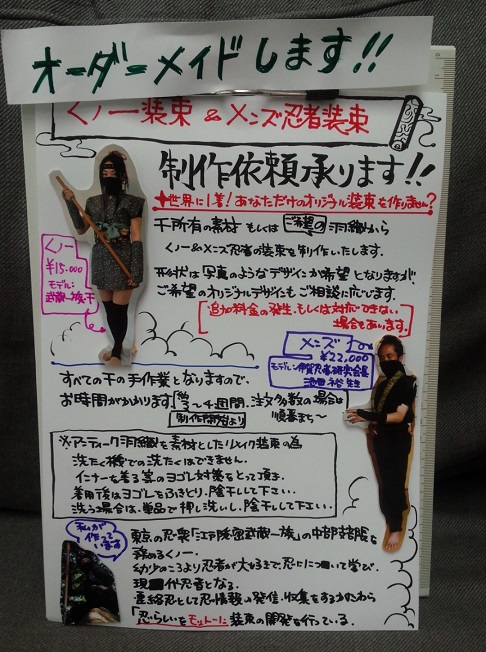 オーダーメイドします!!
くノ一装束 & メンズ忍者装束
制作依頼承ります!!
✦世界に1着!あなただけのオリジナル装束を作りません?
千所有の素材 もしくは ご希望の 羽織から
くノ一&メンズ忍者の装束を制作いたします。
形状は写真のようなデザインか希望となりますが、
ご希望のオリジナルデザインもご相談に応じます。
追加料金の発生、もしくは対応できない
場合もあります。
くノ一
¥15.000
モデル:
武蔵一族・千
メンズ
¥22,000
モデル:伊賀忍者研究会会長
池田裕先生
すべて千の手作業となりますので、
お時間がかかります。約3〜4週間。注文多数の場合は
制作開始より 順番まち〜
※アンティーク羽織を素材としたリメイク装束の為
洗たく機での洗たくはできません。
インナーを着る等のヨゴレ対策をとって頂き、
着用後はヨゴレをふきとり、陰干しして下さい。
洗う場合は、単品で押し洗いし、陰干しして下さい。
私が
作って
います
東京の忍衆「江戸隠密武蔵一族」の中部支部を
務めるくノ一。
幼少のころより忍者が大好きで、忍について学び、
現代忍者となる。
連絡忍として忍情報の発信・収集をするかたわら
「忍らしい」をモットーに装束の開発を行っている。